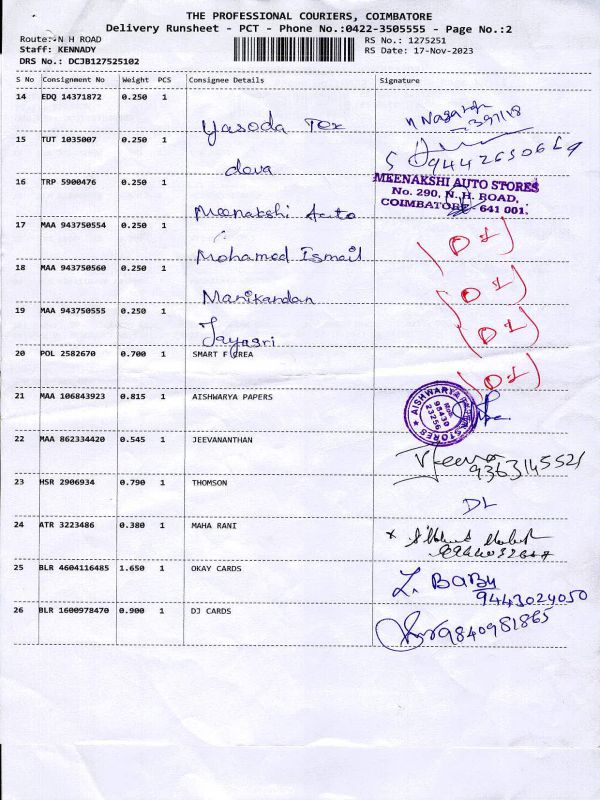 THE PROFESSIONAL COURIERS, COIMBATORE
Delivery Runsheet - PCT - Phone No.:0422-3505555 - Page No.:2
Route:-N H ROAD
RS No.: 1275251
Staff: KENNADY
RS Date: 17-Nov-2023
DRS No.: DCJB127525102
S No Consignment No Weight PCS Consignee Details Signature
14 EDQ 14371872 0.250 1 Yasoda Tex
15 TUT 1035007 0.250 1 deva
16 TRP 5900476 0.250 1 Meenakshi Auto
MEENAKSHI AUTO STORES
No. 290, N. H. ROAD,
COIMBATORE - 641 001.
17 MAA 943750554 0.250 1 Mohamed Ismail
18 MAA 943750560 0.250 1 Manikandan
19 MAA 943750555 0.250 1 Jayasri
20 POL 2582670 0.700 1 SMART F CREA
21 MAA 106843923 0.815 1 AISHWARYA PAPERS
AISHWARYA STORES
22 MAA 862334420 0.545 1 JEEVANANTHAN
9363145521
23 HSR 2906934 0.790 1 THOMSON DL
24 ATR 3223486 0.380 1 MAHA RANI
25 BLR 4604116485 1.650 1 OKAY CARDS L. BABY
9443024050
26 BLR 1600978470 0.900 1 DJ CARDS 9840981865